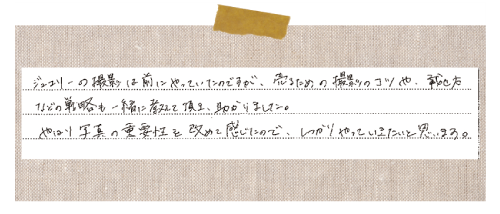 ジュエリーの撮影は前にやっていたのですが、売るための撮影のコツや、載せ方
などの戦略も一緒に教えて頂き、助かりました。
やはり写真の重要性を改めて感じたので、しっかりやっていきたいと思います。